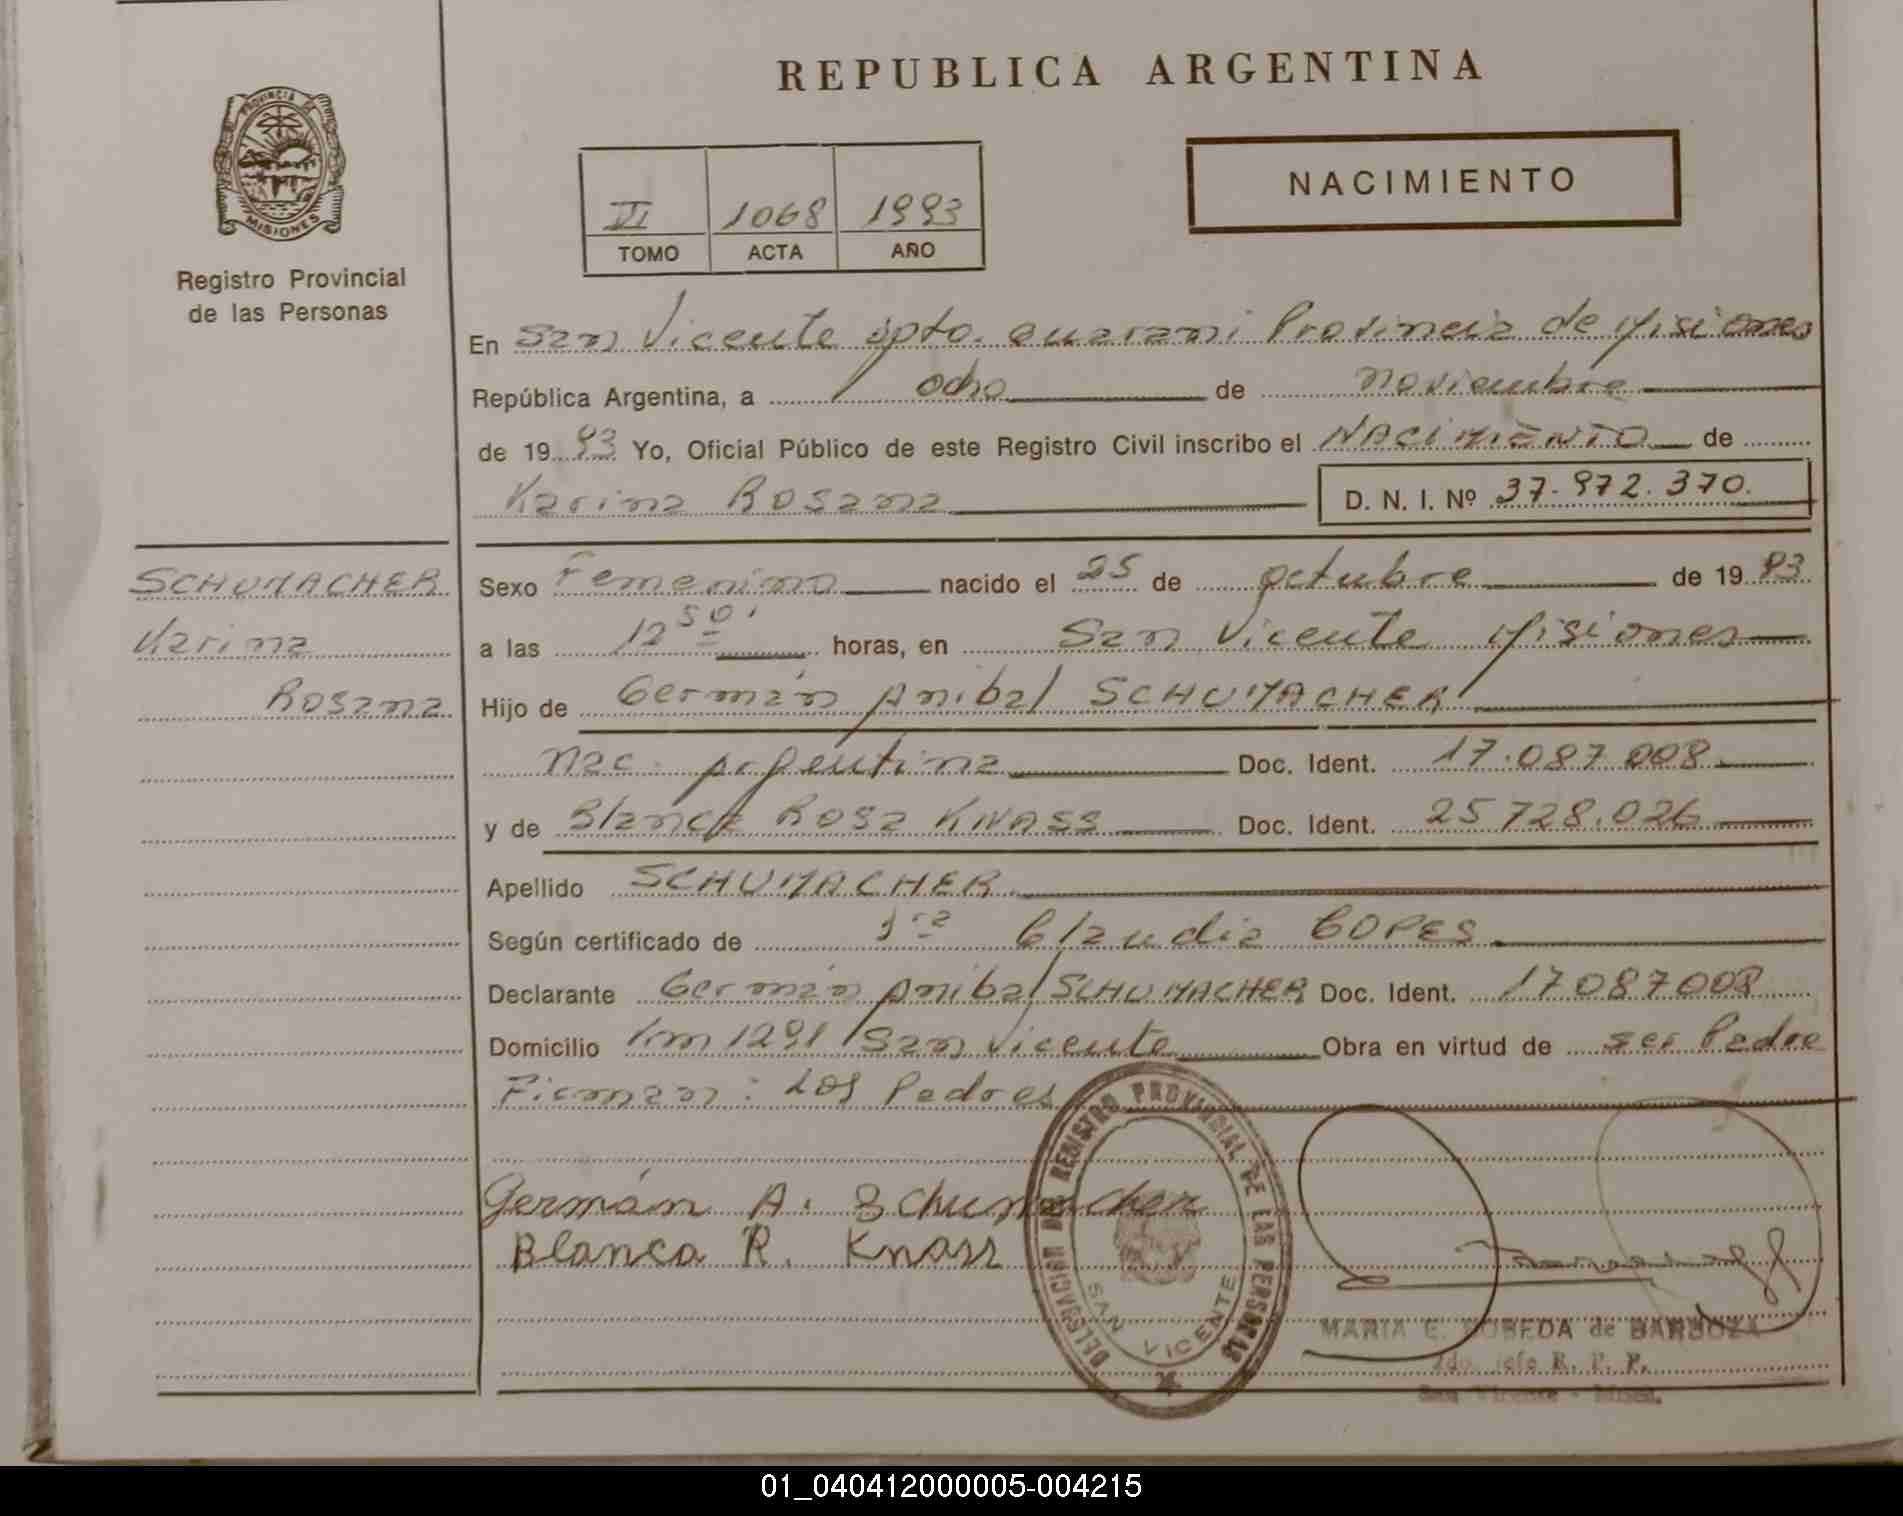 REPUBLICA ARGENTINA
PROVINCIA DE
MISIONES
Registro Provincial
de las Personas
VI 1068 1993
TOMO ACTA AÑO
NACIMIENTO
En San Vicente Dpto. Guarani Provincia de Misiones
República Argentina, a ocho de Noviembre
de 1993 Yo, Oficial Público de este Registro Civil inscribo el NACIMIENTO de
Karina Rosana D. N. I. Nº 37.972.370.
SCHUMACHER
Karina
Rosana
Sexo Femenino nacido el 25 de octubre de 1993
a las 12 50' horas, en San Vicente Misiones
Hijo de Germán Anibal SCHUMACHER
Nac. Argentina Doc. Ident. 17.087.008
y de Blanca Rosa KNASS Doc. Ident. 25.728.026
Apellido SCHUMACHER
Según certificado de Sra Claudia COPES
Declarante Germán Anibal SCHUMACHER Doc. Ident. 17087008
Domicilio Km 1291 San Vicente Obra en virtud de ser Padre
Firman: Los Padres
Germán A. Schumacher
Blanca R. Knass
DELEGACION DEL REGISTRO PROVINCIAL DE LAS PERSONAS
SAN VICENTE
MARIA E. de BARBOZA
2do. Jefe R. P. P.
San Vicente - Mnes.
01_040412000005-004215